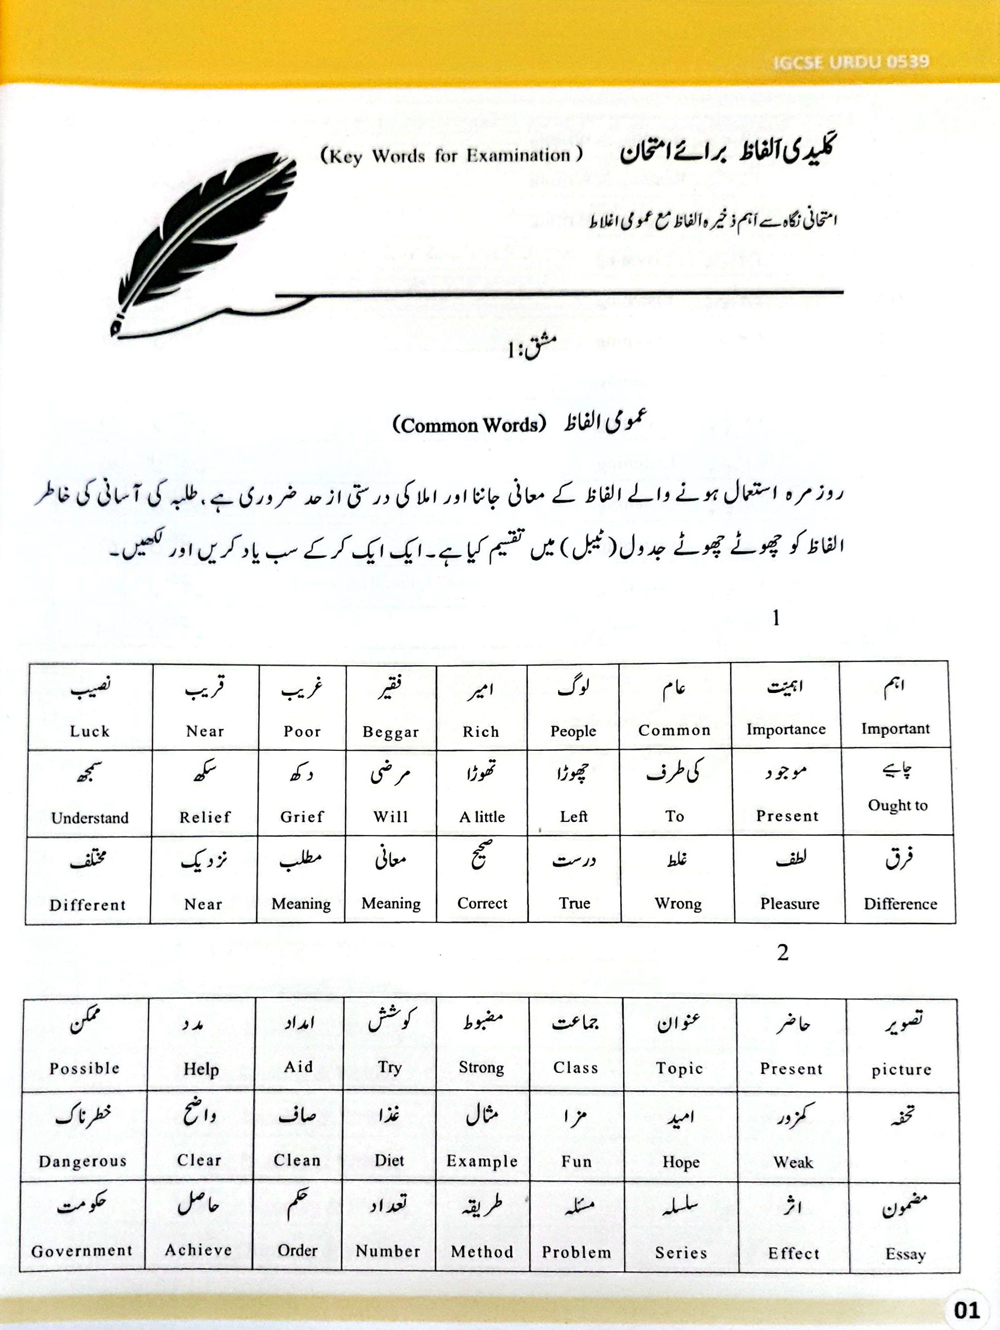 IGCSE URDU 0539
کلیدی الفاظ برائے امتحان (Key Words for Examination)
امتحانی نگاہ سے اہم ذخیرہ الفاظ مع عمومی اغلاط
مشق:1
عمومی الفاظ (Common Words)
روزمرہ استعمال ہونے والے الفاظ کے معانی جاننا اور املا کی درستی از حد ضروری ہے، طلبہ کی آسانی کی خاطر
الفاظ کو چھوٹے چھوٹے جدول (ٹیبل) میں تقسیم کیا ہے۔ ایک ایک کر کے سب یاد کریں اور لکھیں۔
1
اہم اہمیّت عام لوگ امیر فقیر غریب قریب نصیب
Important Importance Common People Rich Beggar Poor Near Luck
چاہیے موجود کی طرف چھوڑا تھوڑا مرضی دکھ سکھ سمجھ
Ought to Present To Left A little Will Grief Relief Understand
فرق لطف غلط درست صحیح معانی مطلب نزدیک مختلف
Difference Pleasure Wrong True Correct Meaning Meaning Near Different
2
تصویر حاضر عنوان جماعت مضبوط کوشش امداد مدد ممکن
picture Present Topic Class Strong Try Aid Help Possible
تحفہ کمزور امید مزا مثال غذا صاف واضح خطرناک
Weak Hope Fun Example Diet Clean Clear Dangerous
مضمون اثر سلسلہ مسئلہ طریقہ تعداد حکم حاصل حکومت
Essay Effect Series Problem Method Number Order Achieve Government
01